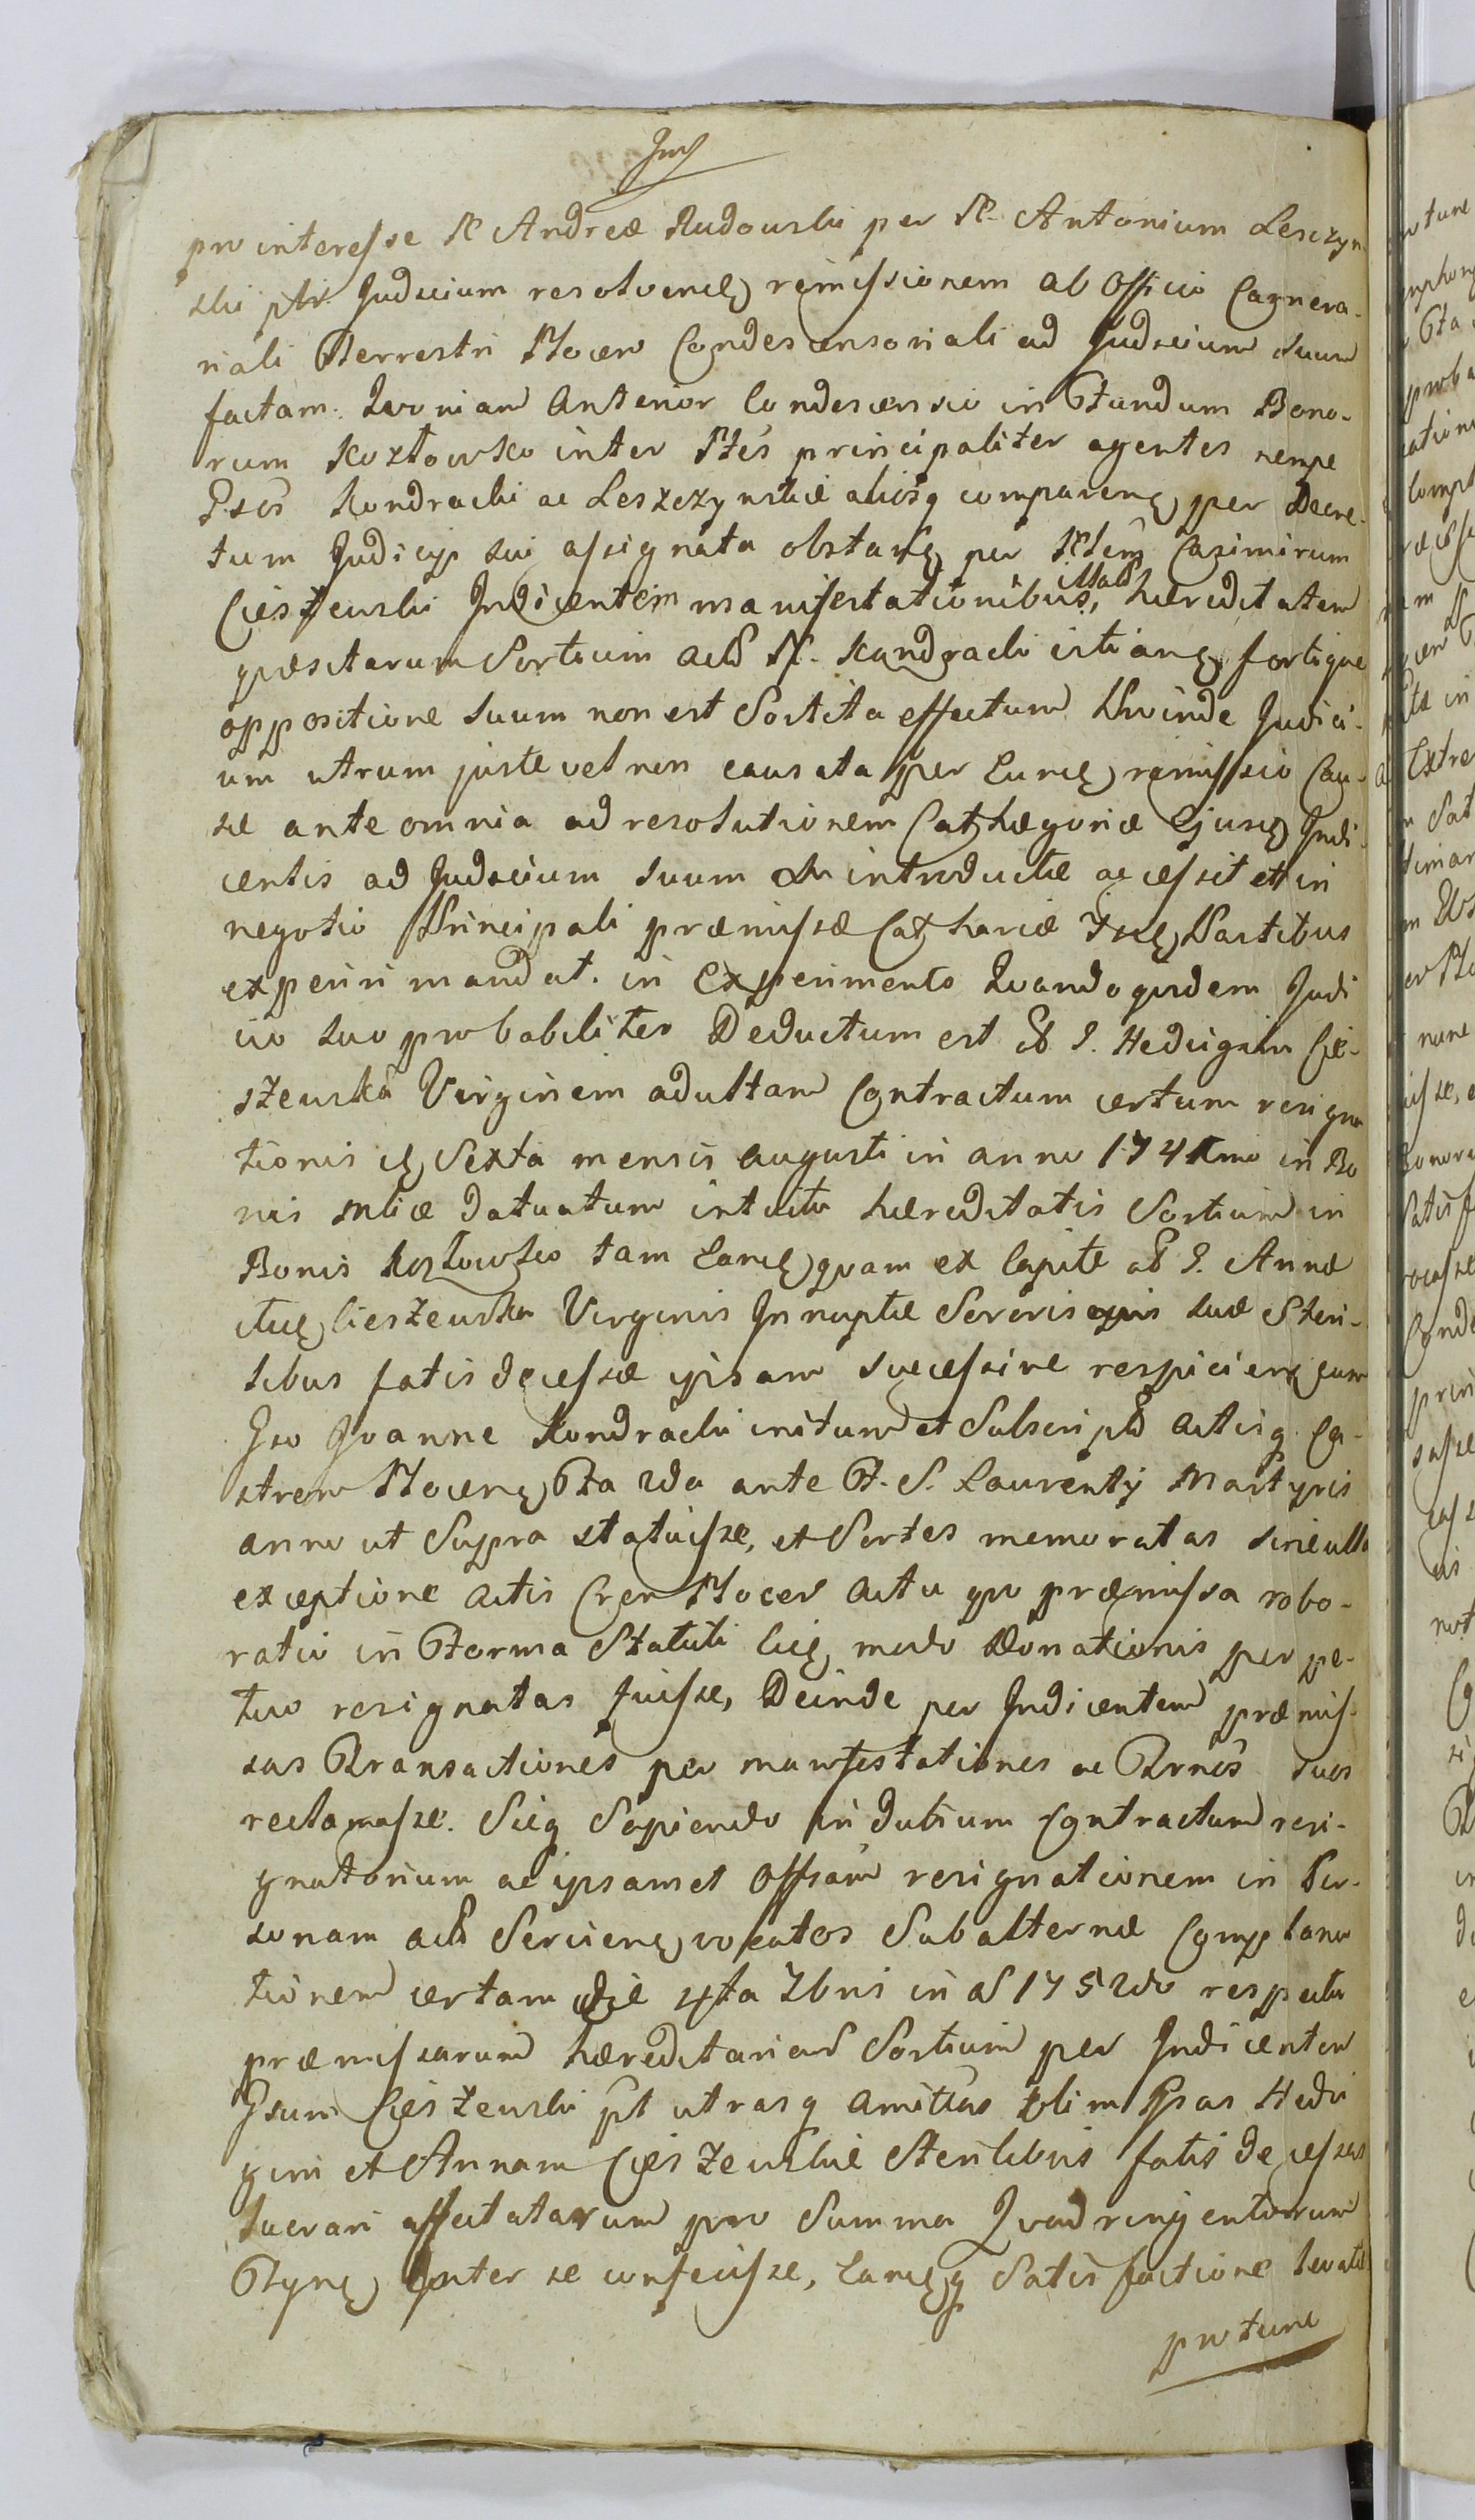 pro interesse N Andreæ Rudowski per N. Antonium Lesczyn
ski ptr. Judicium resolvendo remissionem ab Officio Camera-
riali Terrestri Plocen Condescensoriali ad Judicium suum
factam. Quoniam Anterior Condescensio in Fundum Bono-
rum Kozłowko inter Ptes principaliter agentes nempe
Gsos Kondracki ac Leszczynskie aliosq comparen per Decre-
tum Judicij sui assignata obstan per Casimirum
Cieszewski Indicentem manifestationibus, hæreditatem
quæsitarum Sortium N. Kondracki fortique
oppositione suum non est Sortita effectum Proinde Judici-
um utrum juste vel non causata per Eund remissio Cau-
sæ ante omnia ad resolutionem Cathegoriæ Ejusd Indi-
centis ad Judicium suum introductæ accessit et in
negotio Principali præmissæ Partibus
experiri mandat. in Experimento Quandoquidem Judi
cio suo probabiliter Deductum est G. Hedvigim Cie-
szewska Virginem adultam Contractum certum resigna
tionis Sexta mensis Augusti in anno 1741mo in Bo
nis datuatum intuitu hæreditatis Sortium in
Bonis Kozłowko tam quam ex Capite G. Annæ
Cieszewska Virginis Innuptæ Sororis suæ Steri-
libus fatis decessæ ipsam successive respicien cum
Gso Joanne Kondracki initum et Subscript Actisq Ca-
stren Plocen Fra 2da ante F. S. Laurentij Martyris
anno ut Supra statuisse, et Sortes memoratas sine ulla
exceptione Actis Cren Plocen Actu quo præmissa robo-
ratio in Forma Statuti modo Donationis perpe-
tuo resignatas fuisse, Deinde per Indicentem præmis-
sas Transactiones per manifestationes ac suos
reclamasse. Sicq Sopiendo in dubium Contractum resi-
gnatorium ac ipsamet resignationem in Per-
sonam Subalternæ Complana
tionem certam die 4ta 7bris in A 1752do respectu
præmissarum hæreditariar Sortium per Indicentem
Gsum Cieszewski utrasq Amittas olim Gsas Hedvi
gim et Annam Cieszewskie Sterilibus fatis decessas
lucrari affectatarum pro Summa Quadringentorum
Tynf inter se confecisse, Satisfactione
pro tunc